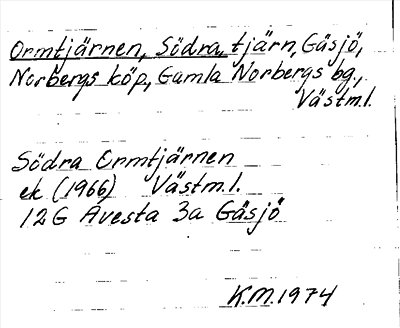 Ormtjärnen, Södra, tjärn, Gäsjö,
Norbergs köp., Gamla Norbergs bg.,
Västml.
Södra Ormtjärnen
ek (1966) Västml.
12G Avesta 3a Gäsjö
K.M. 1974